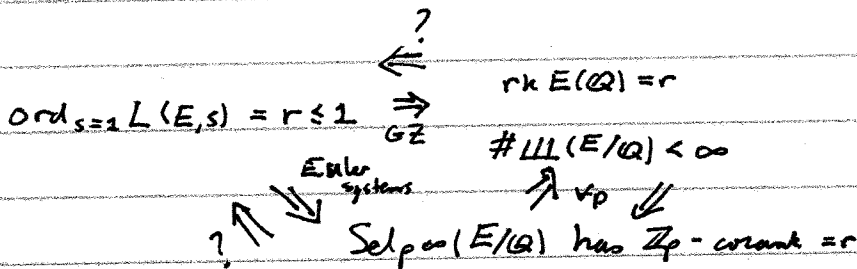 ?
⇐
ord_{s=1} L(E,s) = r ≤ 1 ⇒ rk E(ℚ) = r
GZ
#Ш(E/ℚ) < ∞
Euler systems
⇗ ∀p ⇙
? ⇖ ⇘ Sel_{p^∞}(E/ℚ) has ℤ_p-corank = r